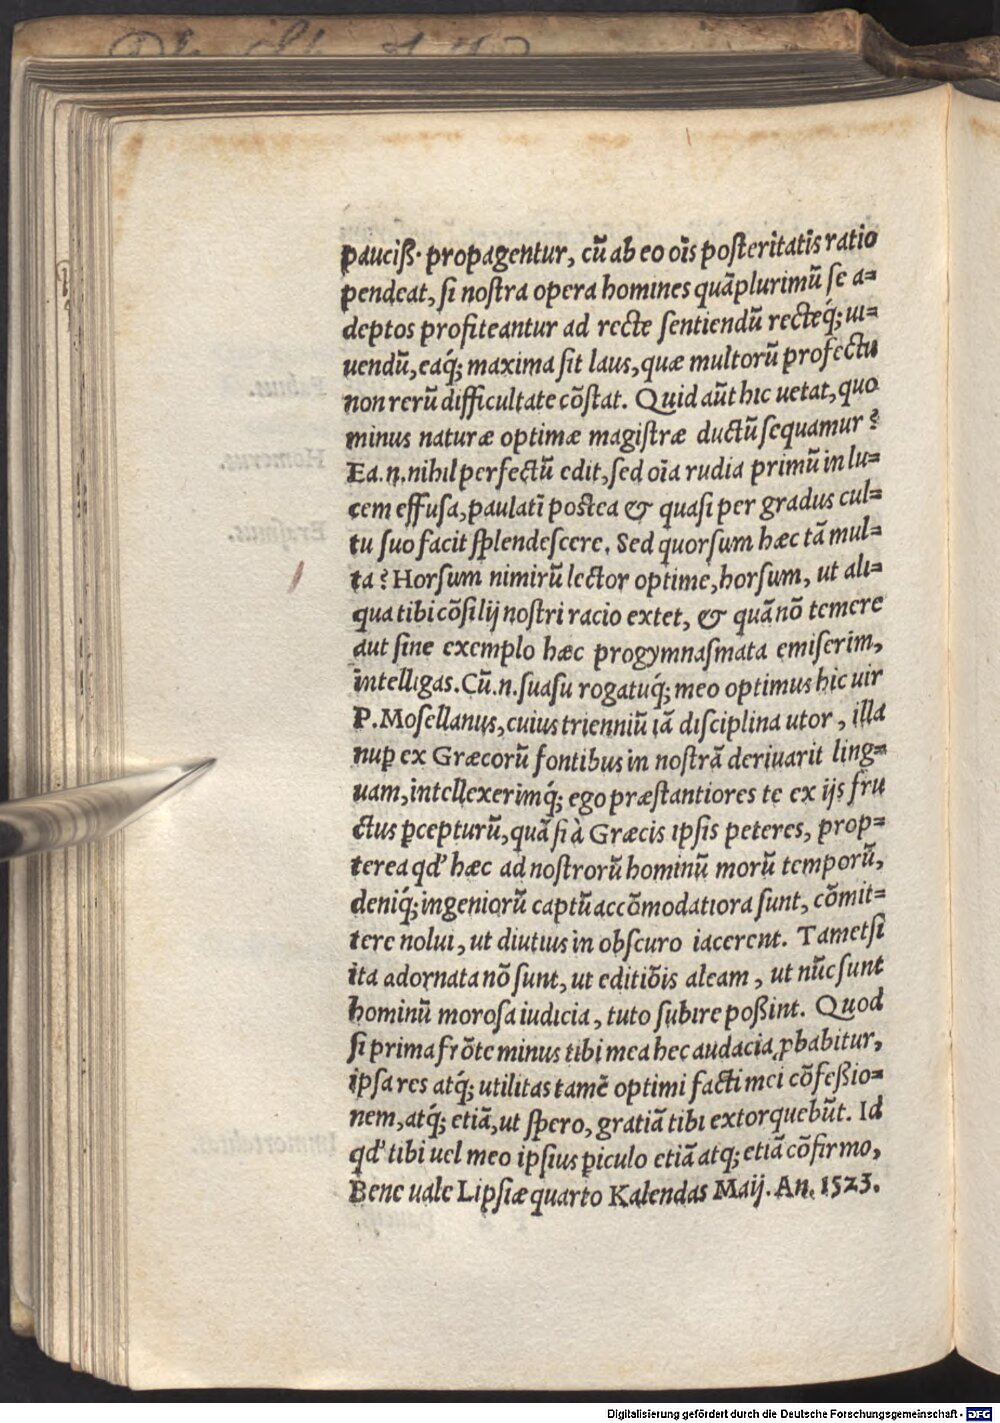 pauciß· propagentur, cũ ab eo oĩs poſteritatis ratio
pendeat, ſi noſtra opera homines quãplurimũ ſe a=
deptos profiteantur ad recte ſentiendũ recteq́; ui=
uendũ, eaq́; maxima ſit laus, quæ multorũ profectu
non rerũ difficultate cõſtat. Quid aũt hic uetat, quo
minus naturæ optimæ magiſtræ ductũ ſequamur?
Ea .n. nihil perfectũ edit, ſed oĩa rudia primũ in lu=
cem effuſa, paulatĩ poſtea & quaſi per gradus cul=
tu ſuo facit ſplendeſcere. Sed quorſum hæc tã mul=
ta? Horſum nimirũ lector optime, horſum, ut ali=
qua tibi cõſilij noſtri racio extet, & quã nõ temere
aut ſine exemplo hæc progymnaſmata emiſerim,
intelligas. Cũ .n. ſuaſu rogatuq́; meo optimus hic uir
P. Moſellanus, cuius trienniũ iã diſciplina utor, illa
nuꝑ ex Græcorũ fontibus in noſtrã deriuarit ling=
uam, intellexerimq́; ego præſtantiores te ex ijs fru
ctus ꝑcepturũ, quã ſi à Græcis ipſis peteres, prop=
terea qd' hæc ad noſtrorũ hominũ morũ temporũ,
deniq́; ingeniorũ captũ accõmodatiora ſunt, cõmit=
tere nolui, ut diutius in obſcuro iacerent. Tametſi
ita adornata nõ ſunt, ut editiõis aleam, ut nũc ſunt
hominũ moroſa iudicia, tuto ſubire poßint. Quod
ſi prima frõte minus tibi mea hec audacia ꝓbabitur,
ipſa res atq́; utilitas tamẽ optimi facti mei cõfeßio=
nem, atq́; etiã, ut ſpero, gratiã tibi extorquebũt. Id
qd' tibi uel meo ipſius ꝑiculo etiã atq; etiã cõfirmo,
Bene uale Lipſiæ quarto Kalendas Maij. An. 1523.
Digitalisierung gefördert durch die Deutsche Forschungsgemeinschaft - DFG